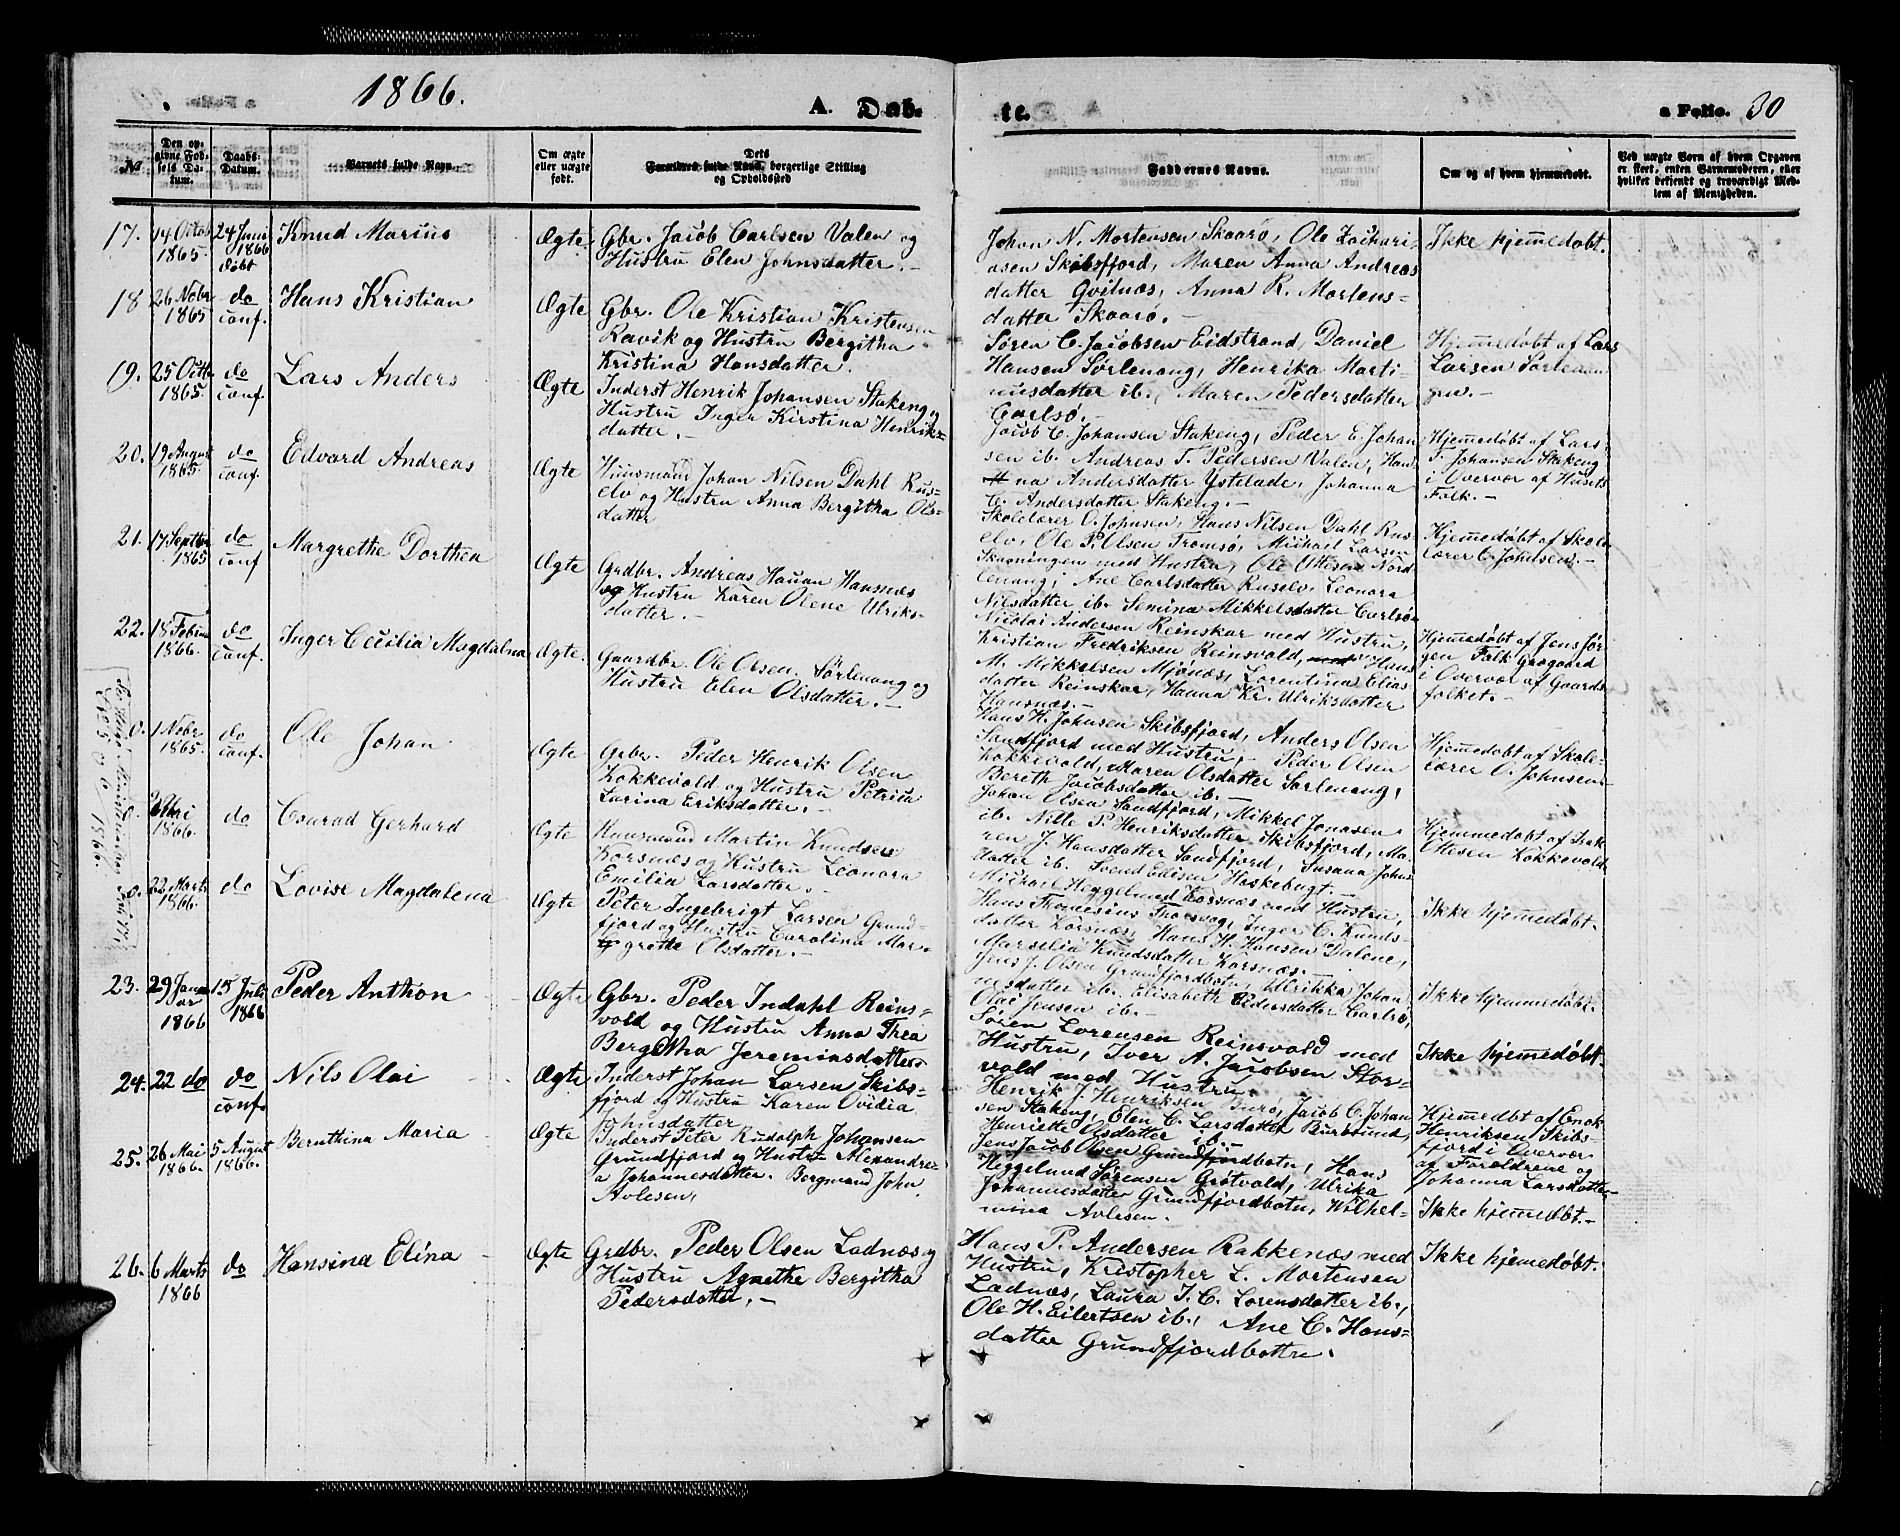 1866.
A. Døb-
te.
a Folio. 30
No
Den op-
givne Fød-
sels Da-
tum.
Daabs-
Datum.
Barnets fulde Navn.
Om ægte
eller uægte
født.
Dets
Forældres fulde Navn, borgerlige Stilling
og Opholdssted
Faddernes Navne.
Om og af hvem hjemmedøbt.
Ved uægte Børn af hvem Opgaven
er skeet, enten Barnemoderen, eller
hvilket bekjendt og troværdigt Med-
lem af Menigheden.
17. 14 Octob 1865. 24 Juni 1866 døbt Knud Marius Ægte
Gbr. Jacob Carlsen Valen og
Hustru Elen Johnsdatter.-
Johan N. Mortensen Skaarø, Ole Zachari-
asen Skibsfjord, Maren Anna Andreas
datter Qvitnæs, Anna R. Mortens-
datter Skaarø.-
Ikke hjemmedøbt.
18 26 Nobr 1865 do conf. Hans Kristian Ægte
Gbr. Ole Kristian Kristensen
Ravik og Hustru Bergitha
Kristina Hansdatter.
Søren C. Jacobsen Eidstrand, Daniel
Hansen Sørlenang, Henrika Marti-
nusdatter ib., Maren Pedersdatter
Carlsø.-
Hjemmedøbt af Lars
Larsen Sørlenan
gen.-
19. 25 Octb 1865. do conf. Lars Anders Ægte
Inderst Henrik Johansen Stakeng og
Hustru Inger Kirstina Henriks-
datter.-
Jacob C. Johansen Stakeng, Peder E. Johan
sen ib. Andreas T. Pedersen Valen, Han
na Andersdatter Ystelade, Johanna
C. Andersdatter Stakeng.-
Hjemmedøbt af Lars
T. Johansen Stakeng
i Overvær af Husets
Folk.-
20. 19 August 1865. do conf. Edvard Andreas Ægte
Huusmand Johan Nilsen Dahl Rus-
elv og Hustru Anna Bergitha Ols-
datter
Skolelærer O. Johnsen, Hans Nilsen Dahl Rus-
elv, Ole P. Olsen Tromsø, Michail Larsen
Skaaningen med Hustru, Ole Ottesen Nord
lenang, Ane Carlsdatter Ruselv, Leonora
Nilsdatter ib. Semina Mikkelsdatter Carlsø
Hjemmedøbt af Skole
lærer O. Johnsen.-
21. 17 Septbr 1865 do conf Margrethe Dorthea Ægte
Grdbr. Andreas Hauan Hansnæs
og Hustru Karen Olene Ulriks-
datter.-
Nicolai Andersen Reinskar med Hustru,
Kristian Fredriksen Reinsvold, Hans
M. Mikkelsen Mjønæs, Lorentina Elias
datter Reinskar, Hanna Kr. Ulriksdatter
Hansnæs.-
Hjemmedøbt af Jens Jør
gen Falk Graagaard
i Overvær af Gaards
folket.-
22. 18 Februar 1866. do conf. Inger Cecilia Magdalena Ægte.
Gaardbr. Ole Olsen Sørlenang og
Hustru Elen Olsdatter.-
Hans H. Johnsen Skibsfjord, Anders Olsen
Sandfjord med Hustru, Peder Olsen
Kokkevold, Maren Olsdatter Sørlenang,
Bereth Jacobsdatter ib.-
Hjemmedøbt af Skole-
lærer O. Johnsen.
0. 1 Nobr 1865. do conf. Ole Johan Ægte
Grbr. Peder Henrik Olsen
Kokkevold og Hustru Petrica
Larina Eriksdatter.-
Johan Olsen Sandfjord, Mikkel Jonasen
ib. Nille P. Henriksdatter Skibsfjord, Ma-
ren J. Hansdatter Sandfjord, Susana Johns
datter ib. Svend Edisen Haskebugt.-
Hjemmedøbt af Isak
Ottesen Kokkevold
0. Mai 1866. do Conrad Gerhard Ægte
Huusmand Martin Knudsen
Korsnæs og Hustru Leonora
Emilia Larsdatter.-
Michail Heggelund Korsnæs med Hustru,
Hans Francisius Thorsvog, Inger C. Knuds-
datter Korsnæs, Hans H. Hansen Dalene,
Marselia Knudsdatter Korsnæs.-
Ikke hjemmedøbt.
0. 22 Marts 1866. do Lovise Magdalena Ægte
Peter Ingebrigt Larsen Grund-
fjord og Hustru Carolina Mar-
grethe Olsdatter.-
Jens J. Olsen Grundfjordbotn, Ulrikka Johan
nesdatter ib. Elisabeth Pedersdatter Carlsø,
Olai Jensen ib.-
Ikke hjemmedøbt.
23. 29 Janu ar 1866 15 Juli 1866 Peder Anthon Ægte
Gbr. Peder Indahl Reins-
vold og Hustru Anna Thea
Bergitha Jeremiasdatter
Søren Lorensen Reinsvold med
Hustru, Iver A. Jacobsen Stor-
vold med Hustru.
Ikke hjemmedøbt.
24. 22 do do conf. Nils Olai Ægte
Inderst Johan Larsen Skibs-
fjord og Hustru Karen Ovidia
Johnsdatter
Henrik J. Henriksen Burø, Jacob C. Johan
sen Stakeng, Elen C. Larsdatter Burøsund,
Henriette Olsdatter ib.-
Hjemedbt af Enok
Henriksen Skibs-
fjord i Overvær
af Forældrene og
Johanna Larsdatter
25. 26 Mai 1866. 5 August 1866. Bernthina Maria Ægte
Inderst Peter Rudolph Johansen
Grundfjord og Hustru Alexandre-
a Johannesdatter. Borgmand John
Avlesen,
Jens Jacob Olsen Grundfjordbotn, Hans
Heggelund Sørensen Grøtvold, Ulrika
Johannesdatter Grundfjordbotn, Wilhel-
mina Avlesen.
Ikke hjemmedøbt.-
26. 6 Marts 1866 do Hansina Elina Ægte
Grdbr. Peder Olsen Ladnæs og
Hustru Agnethe Bergitha
Pedersdatter.-
Hans P. Andersen Rakkenæs med
Hustru, Kristopher L. Mortensen
Ladnæs, Laura I. C. Lorensdatter ib.,
Ole H. Eilertsen ib., Ane C. Hans-
datter Grundfjordbottn.
Ikke hjemmedøbt.
No 5 og 6 1866.